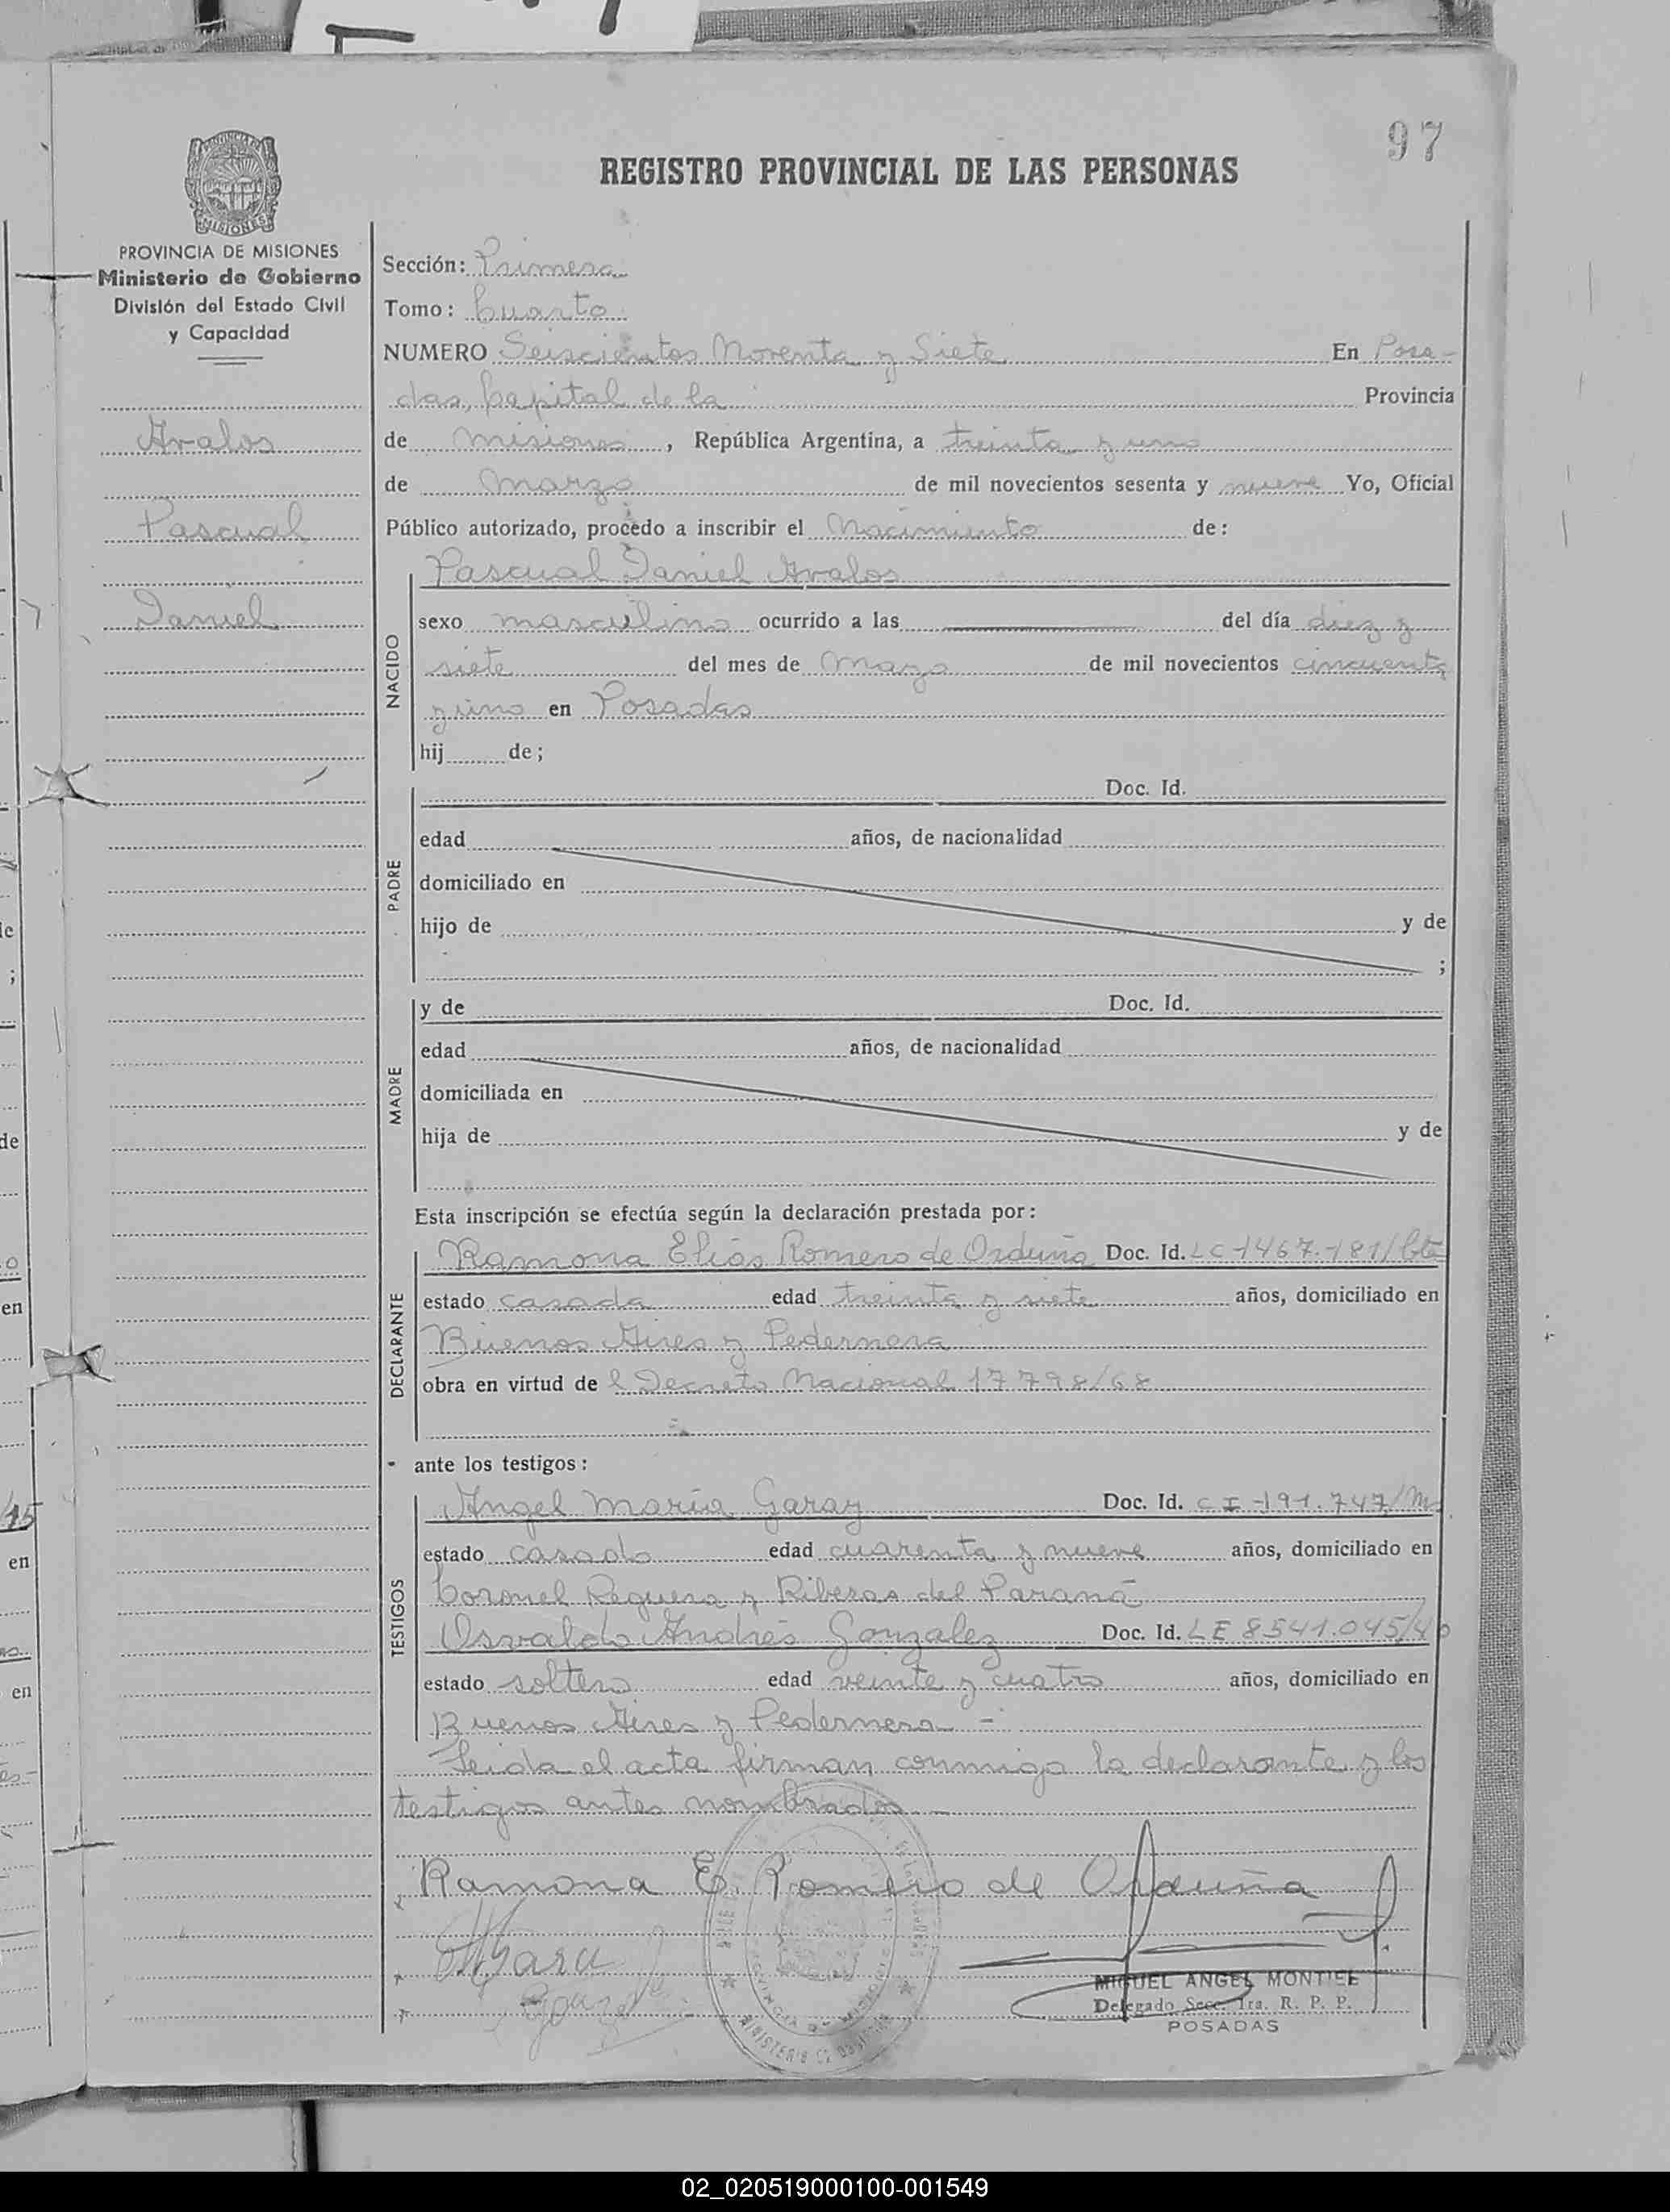 97
REGISTRO PROVINCIAL DE LAS PERSONAS
PROVINCIA DE MISIONES
Ministerio de Gobierno
División del Estado Civil
y Capacidad
Avalos
Pascual
Daniel
Sección: Primera
Tomo: Cuarto
NUMERO Seiscientos Noventa y Siete En Posa-
das, Capital de la Provincia
de Misiones, República Argentina, a treinta y uno
de Marzo de mil novecientos sesenta y nueve Yo, Oficial
Público autorizado, procedo a inscribir el Nacimiento de:
NACIDO
Pascual Daniel Avalos
sexo masculino ocurrido a las del día diez y
siete del mes de Mayo de mil novecientos cincuenta
y uno en Posadas
hij de;
PADRE
Doc. Id.
edad años, de nacionalidad
domiciliado en
hijo de y de
;
MADRE
y de Doc. Id.
edad años, de nacionalidad
domiciliada en
hija de y de
Esta inscripción se efectúa según la declaración prestada por:
DECLARANTE
Ramona Elias Romero de Orduña Doc. Id. LC 1467.181/
estado casada edad treinta y siete años, domiciliado en
Buenos Aires y Pedernera
obra en virtud de l Decreto Nacional 17798/68
ante los testigos:
TESTIGOS
Angel María Garay Doc. Id. CI-191.747/Ms
estado casado edad cuarenta y nueve años, domiciliado en
Coronel Reguera y Riberas del Paraná
Osvaldo Andrés Gonzalez Doc. Id. LE 8541.045/
estado soltero edad veinte y cuatro años, domiciliado en
Buenos Aires y Pedernera -
Leida el acta firman conmigo la declarante y los
testigos antes nombrados. -
Ramona E. Romero de Orduña
MIGUEL ANGEL MONTIEL
Delegado Secc. 1ra. R. P. P.
POSADAS
02_020519000100-001549